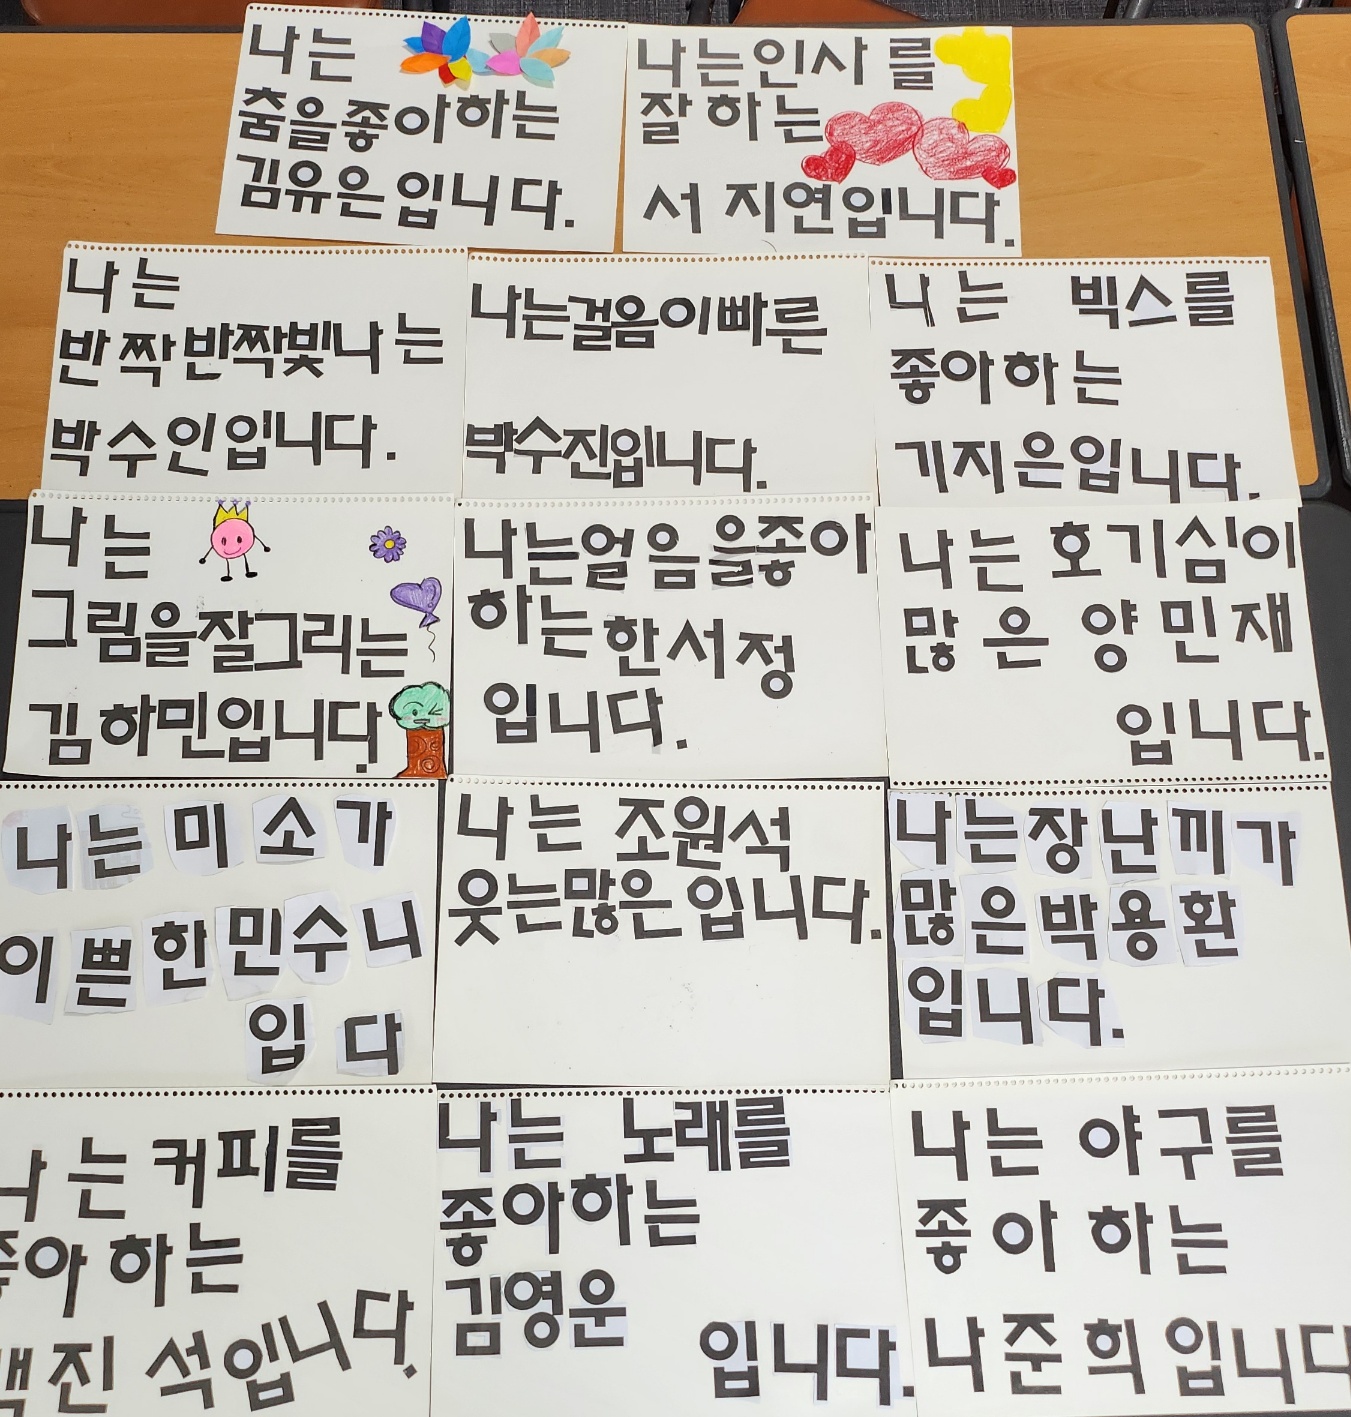 나는
춤을좋아하는
김유은입니다.
나는인사를
잘하는
서 지연입니다.
나는
반짝반짝빛나는
박수인입니다.
나는걸음이빠른
박수진입니다.
나는 빅스를
좋아하는
기지은입니다.
나는
그림을잘그리는
김하민입니다.
나는얼음을좋아
하는한서정
입니다.
나는 호기심이
많은 양민재
입니다.
나는 미소가
이쁜한민수니
입 다
나는 조원석
웃는많은입니다.
나는장난끼가
많은박용환
입니다.
나는커피를
좋아하는
진석입니다.
나는 노래를
좋아하는
김영운
입니다.
나는 야구를
좋아 하는
나준희 입니다